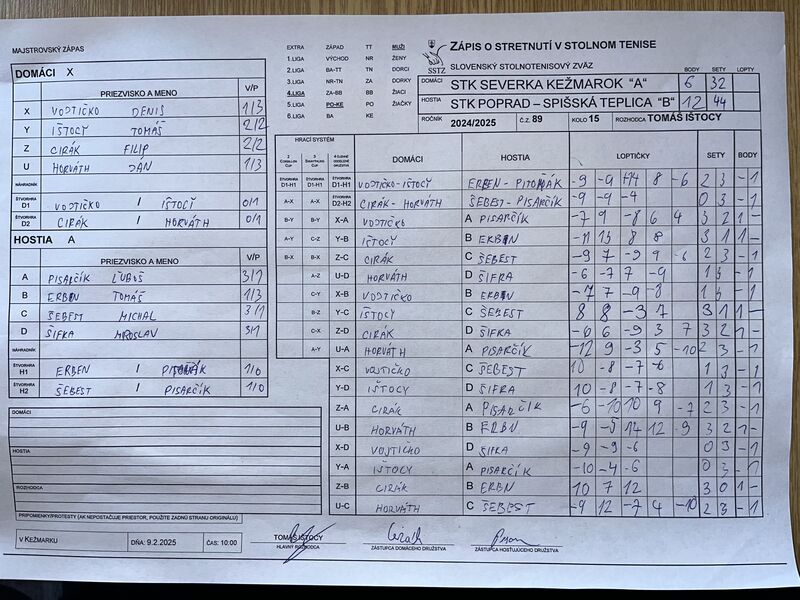 MAJSTROVSKÝ ZÁPAS
EXTRA ZÁPAD TT MUŽI
1.LIGA VÝCHOD NR ŽENY
2.LIGA BA-TT TN DORCI
3.LIGA NR-TN ZA DORKY
4.LIGA ZA-BB BB ŽIACI
5.LIGA PO-KE PO ŽIAČKY
6.LIGA BA KE
SSTZ
ZÁPIS O STRETNUTÍ V STOLNOM TENISE
SLOVENSKÝ STOLNOTENISOVÝ ZVÄZ
BODY SETY LOPTY
DOMÁCI STK SEVERKA KEŽMAROK "A" 6 32
HOSTIA STK POPRAD – SPIŠSKÁ TEPLICA "B" 12 44
ROČNÍK 2024/2025 Č.Z. 89 KOLO 15 ROZHODCA TOMÁŠ IŠTOCY
DOMÁCI X
PRIEZVISKO A MENO V/P
X VOJTIČKO DENIS 1/3
Y IŠTOCY TOMÁŠ 2/2
Z CIRÁK FILIP 2/2
U HORVÁTH JÁN 1/3
NÁHRADNÍK
ŠTVORHRA D1 VOJTIČKO / IŠTOCY 0/1
ŠTVORHRA D2 CIRÁK / HORVÁTH 0/1
HOSTIA A
PRIEZVISKO A MENO V/P
A PISARČÍK ĽUBOŠ 3/1
B ERBEN TOMÁŠ 1/3
C ŠEBEST MICHAL 3/1
D ŠIFRA MIROSLAV 3/1
NÁHRADNÍK
ŠTVORHRA H1 ERBEN / 1/0
ŠTVORHRA H2 ŠEBEST / PISARČÍK 1/0
DOMÁCI
HOSTIA
ROZHODCA
PRIPOMIENKY/PROTESTY (AK NEPOSTAČUJE PRIESTOR, POUŽITE ZADNÚ STRANU ORIGINÁLU)
V KEŽMARKU DŇA: 9.2.2025 ČAS: 10:00
HRACÍ SYSTÉM DOMÁCI HOSTIA LOPTIČKY SETY BODY
ŠTVORHRA D1-H1 ŠTVORHRA D1-H1 ŠTVORHRA D1-H1 VOJTIČKO-IŠTOCY ERBEN- -9 -9 14 8 -6 2 3 -1
A-X A-X ŠTVORHRA D2-H2 CIRÁK-HORVÁTH ŠEBEST-PISARČÍK -9 -9 -4 0 3 -1
B-Y B-Y X-A VOJTIČKO A PISARČÍK -7 9 -8 6 4 3 2 1 -
A-Y C-Z Y-B IŠTOCY B ERBEN -11 13 8 8 3 1 1 -
B-X B-X Z-C CIRÁK C ŠEBEST -9 7 -9 9 -6 2 3 -1
A-Z U-D HORVÁTH D ŠIFRA -6 -7 7 -9 1 3 -1
C-Y X-B VOJTIČKO B ERBEN -7 7 -9 -8 1 3 -1
B-Z Y-C IŠTOCY C ŠEBEST 8 8 -3 7 3 1 1 -
C-X Z-D CIRÁK D ŠIFKA -6 6 -9 3 7 3 2 1 -
A-Y U-A HORVÁTH A PISARČÍK -12 9 -3 5 -10 2 3 -1
X-C VOJTIČKO C ŠEBEST 10 -8 -7 -6 1 3 -1
Y-D IŠTOCY D ŠIFRA 10 -8 -7 -8 1 3 -1
Z-A CIRÁK A PISARČÍK -6 -10 10 9 -7 2 3 -1
U-B HORVÁTH B ERBN -9 -5 14 12 -9 3 2 -
X-D VOJTIČKO D ŠIFRA -9 -9 -6 0 3 -1
Y-A IŠTOCY A PISARČÍK -10 -4 -6 0 3 -1
Z-B CIRÁK B ERBN 10 7 12 3 0 1 -
U-C HORVÁTH C ŠEBEST -9 12 -7 4 -10 2 3 -1
TOMÁŠ IŠTOCY
HLAVNÝ ROZHODCA
Cirák
ZÁSTUPCA DOMÁCEHO DRUŽSTVA
ZÁSTUPCA HOSŤUJÚCEHO DRUŽSTVA